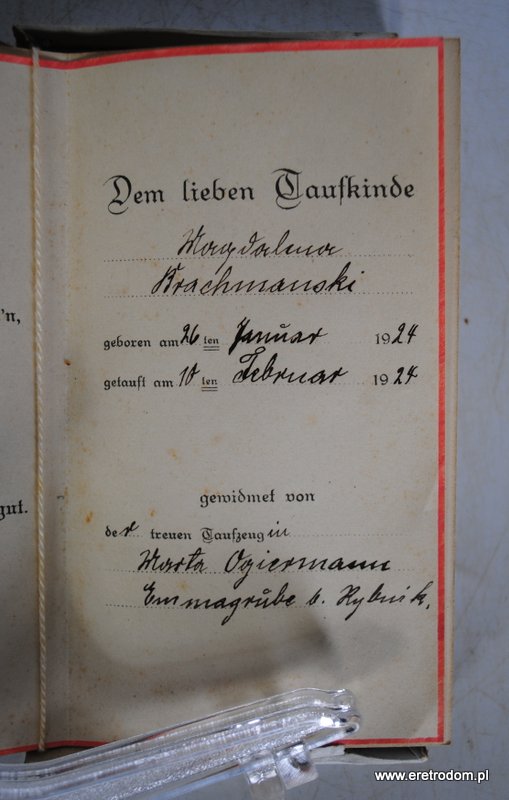 'n,
gut.
Dem lieben Taufkinde
Magdalena
Brachmanski
geboren am 26 ten Januar 1924
getauft am 10 ten Februar 1924
gewidmet von
der treuen Taufzeugin
Marta Ogiermann
Emmagrube b. Rybnik.
www.eretrodom.pl